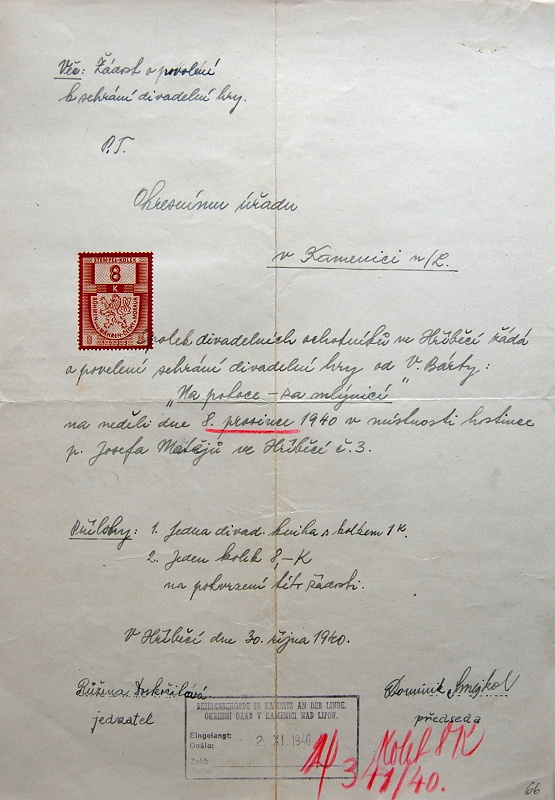 Věc: Žádost o povolení
k sehrání divadelní hry.
P.T.
Okresnímu úřadu
v Kamenici n/L.
STEMPEL-KOLEK
8
K
BÖHMEN-MÄHREN-ČECHY-MORAVA
8 8
olek divadelních ochotníků ve Hříběcí žádá
o povelení sehrání divadelní hry od V. Bárty:
„Na potoce - za mlýnicí"
na neděli dne 8. prosince 1940 v místnosti hostince
p. Josefa Matějů ve Hříběcí č. 3.
Přílohy: 1. Jedna divad. kniha s kolkem 1 K.
2. Jeden kolik 8,-K
na potvrzení této žádosti.
V Hříběcí dne 30. října 1940.
Růžena Doskočilová Dominik Smejkal
jednatel předseda
BEZIRKSBEHÖRDE IN KAMNITZ AN DER LINDE.
OKRESNÍ ÚŘAD V KAMENICI NAD LIPOU.
Eingelangt:
Došlo: 2. XI 1940
Zahl:
Kolek 8K
341/40.
66